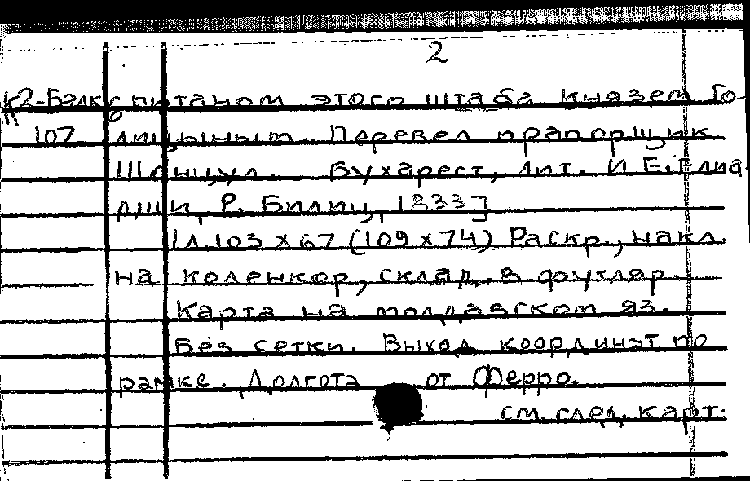 2
К2-Балк питаном этого штаба Князем Го-
107 лицыным. Перевел прапорщик
Шонцул. Бухарест, лит. И Е. Глиа
дши, Р. Билиц, 1833]
1л. 103 х 67 (109 х 74) Раскр., накл.
на коленкор, склад. в футляр
Карта на молдавском яз.
Без сетки. Выход координат по
рамке. Долгота от Ферро.
см. след. карт.